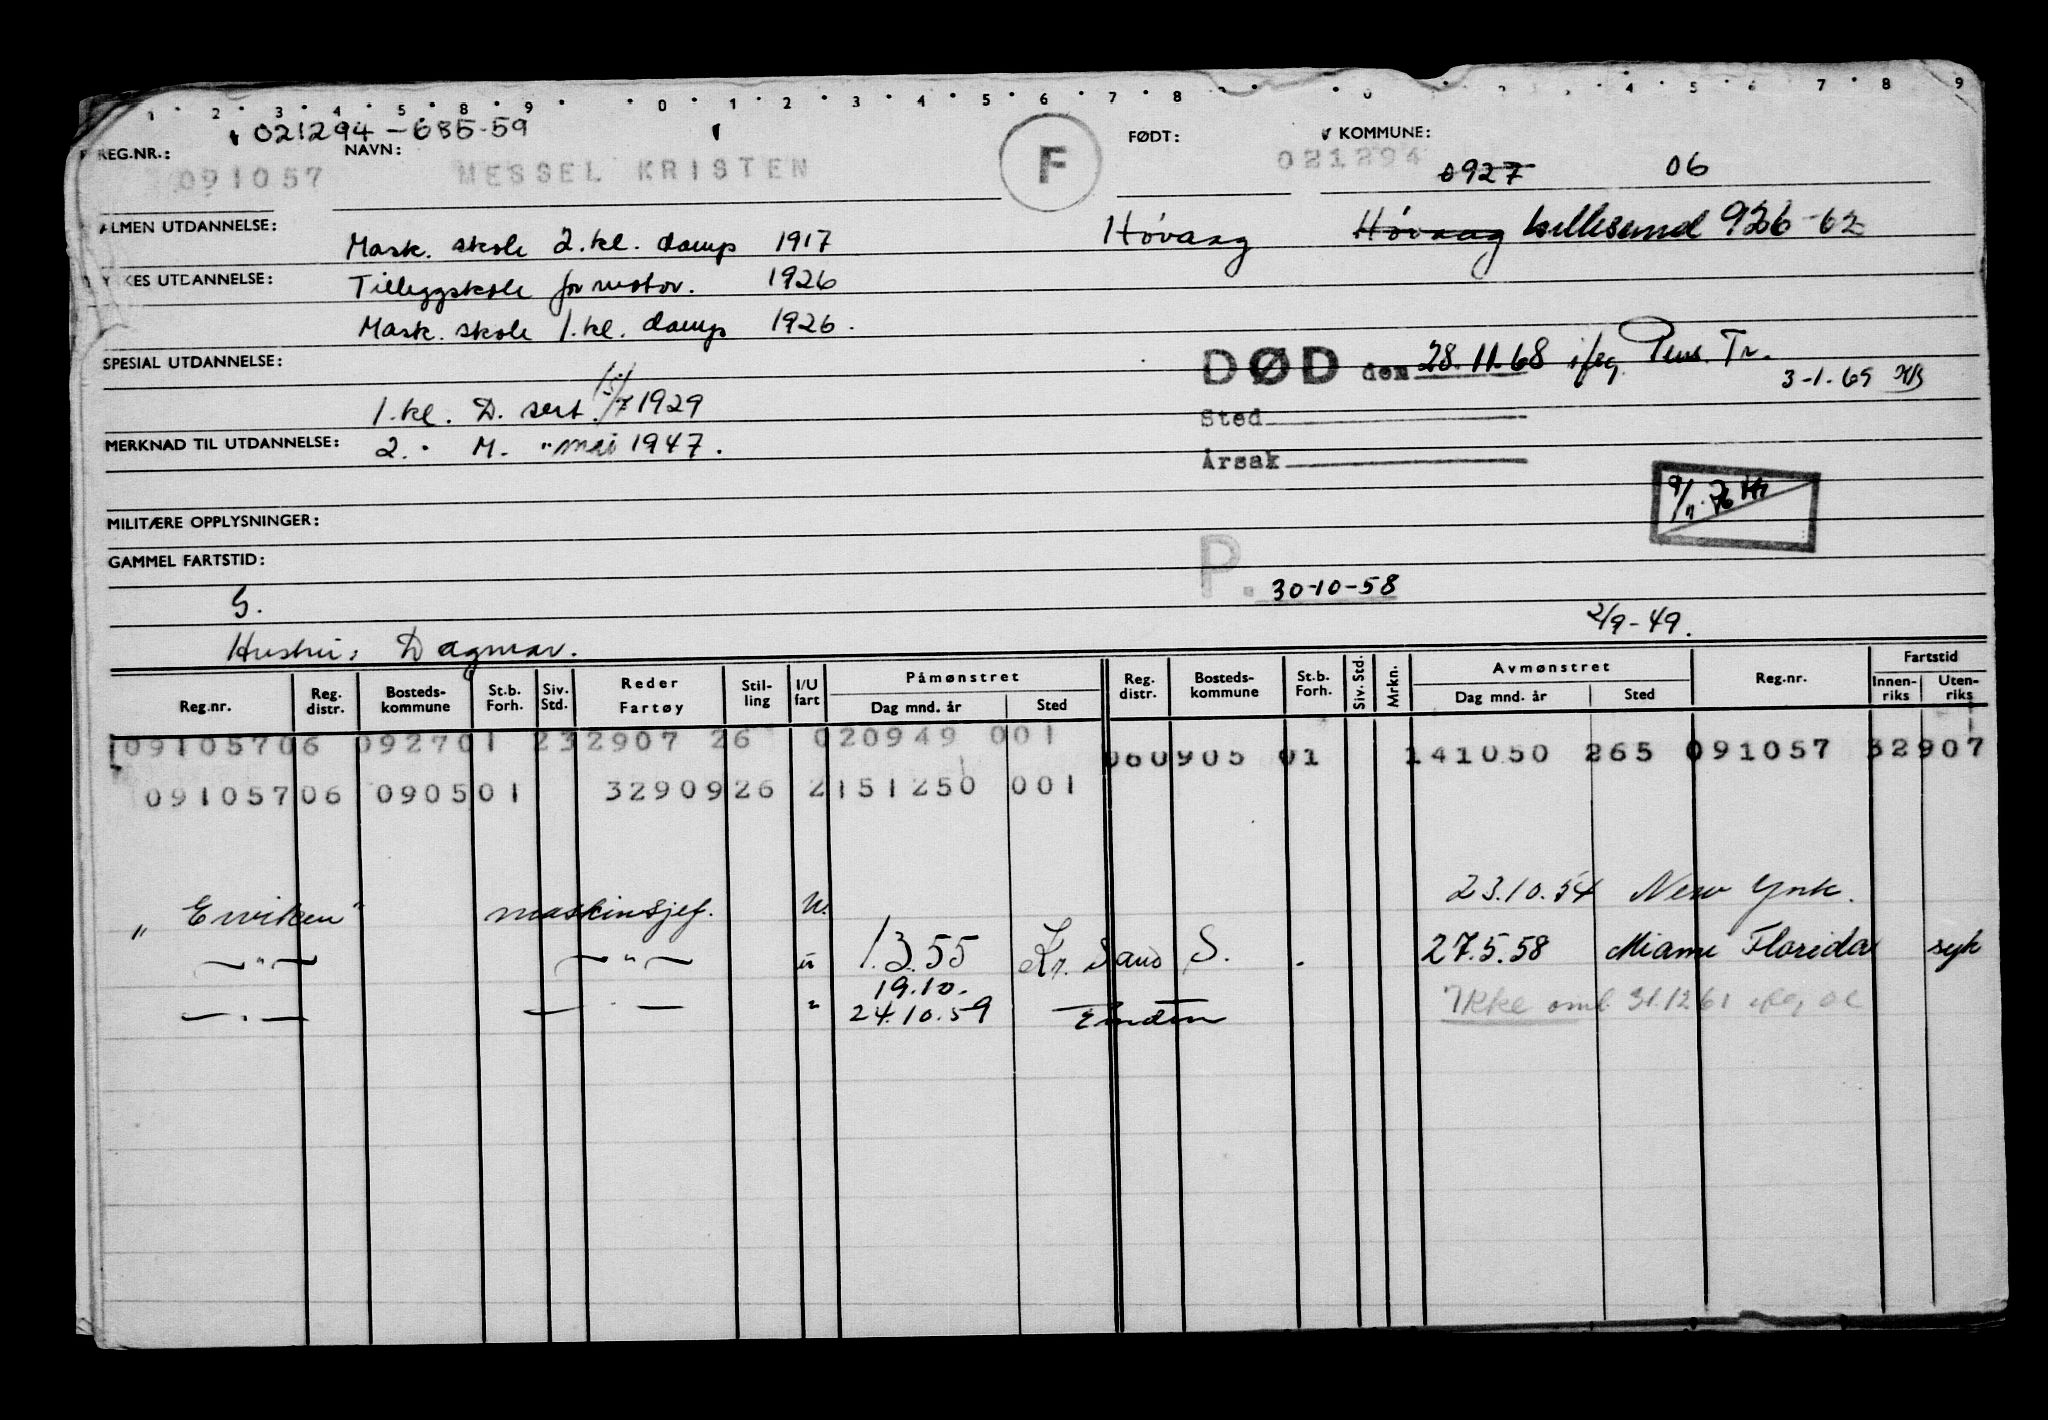 1 2 3 4 5 8 9 0 1 2 3 4 5 6 7 8 0 4 5 6 7 8 9
021294-685-59
REG.NR.: NAVN: FØDT: KOMMUNE:
091057 MESSEL KRISTEN F 021294 0927 06
ALMEN UTDANNELSE: Mask. skole 2.kl. damp 1917 Høvaag Høvaag Lillesand 926-62
YRKES UTDANNELSE: Tilleggskole for motor. 1926
Mask. skole 1.kl. damp 1926.
SPESIAL UTDANNELSE: DØD den 28.11.68 iføg. Pens. Tr.
3-1.69
1.kl. D. sert. 15/7 1929 Sted
MERKNAD TIL UTDANNELSE: 2. " M. " mai 1947. Årsak
9/11.76
MILITÆRE OPPLYSNINGER:
GAMMEL FARTSTID: P. 30-10-58
G. 2/9-49.
Hustru: Dagmar.
Reg.nr. Reg. distr. Bosteds- kommune St.b. Forh. Siv. Std. Reder Fartøy Stil- ling I/U fart Påmønstret Dag mnd. år Sted Reg. distr. Bosteds- kommune St.b. Forh. Siv. Std. Mrkn. Avmønstret Dag mnd. år Sted Reg.nr. Fartstid Innen- riks Uten- riks
09105706 092701 232907 26 020949 001 060905 01 141050 265 091057 32907
09105706 090501 3290926 2151250 001
"Erviken" maskinsjef. U. 23.10.54 New York.
—"— —"— " 1.3.55 Kr. Sand S. 27.5.58 Miami Florida syk
19.10.
—"— —"— " 24.10.59 Emden Ikke oml. 31.12.61